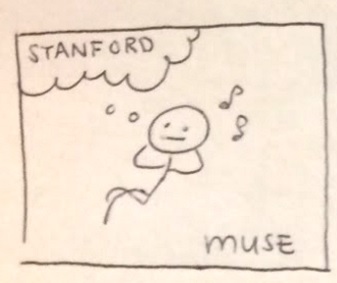 STANFORD
MUSE